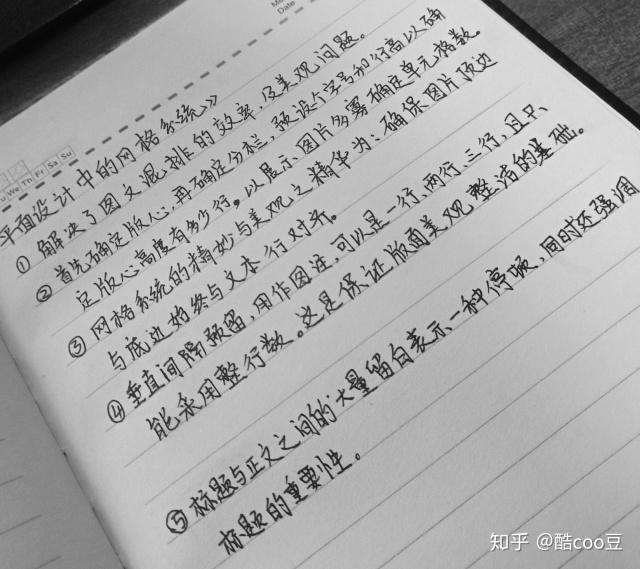 Date
u We Th Fr Sa Su
平面设计中的网格系统》
① 解决了图文混排的效率，及美观问题。
② 首先确定版心，再确定分栏，预设个字号和行高以确
定版心高度有多少行。以展示图片多寡确定单元格数。
③ 网格系统的精妙与美观之精华为：确保图片顶边
与底边始终与文本行对齐。
④ 垂直间隔预留，用作图注，可以是一行、两行、三行，且只
能采用整行数。这是保证版面美观整洁的基础。
⑤ 标题与正文之间的大量留白表示一种停顿，同时还强调
标题的重要性。
知乎 @酷coo豆